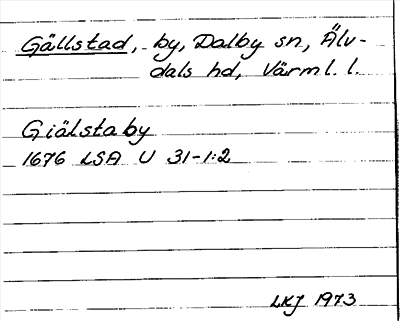 Gällstad, by, Dalby sn, Älv-
dals hd, Värml. l.
Giälstaby
1676 LSA U 31-1:2
LKJ 1973